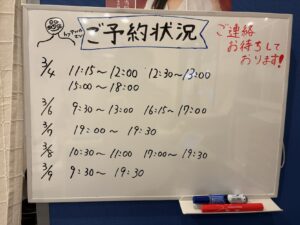 ご予約状況
ご連絡
お待ちして
おります!
3/4 11:15～12:00 12:30～13:00
15:00～18:00
3/6 9:30～13:00 16:15～17:00
3/7 19:00～19:30
3/8 10:30～11:00 17:00～19:30
3/9 9:30～19:30